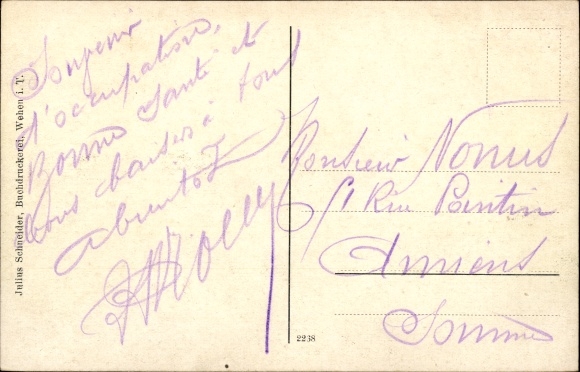 Julius Schneider, Buchdruckerei, Wehen i. T.
Souvenir
d'occupation.
Bonne santé et
bons baisers à tous
à bientôt
Monsieur Nonus
51 Rue
Amiens
Somme
2238